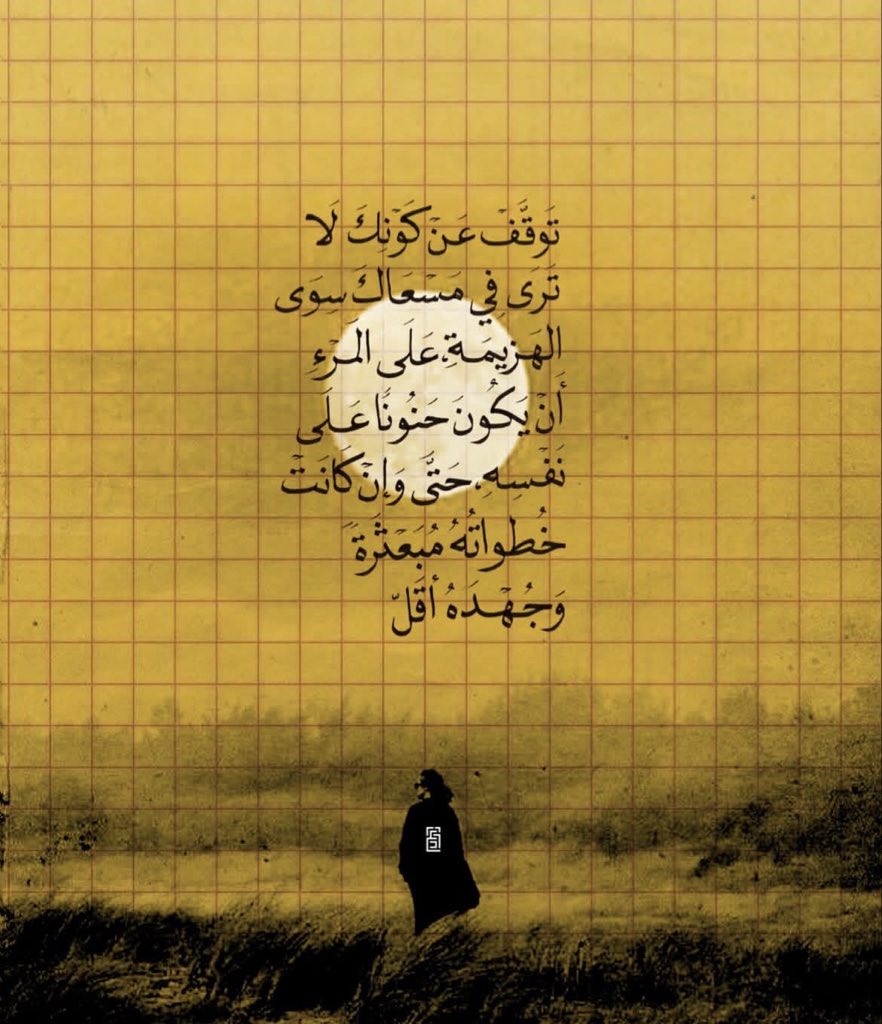 تَوَقَّفْ عَنْ كَوْنِكَ لَا
تَرَى فِي مَسْعَاكَ سِوَى
الهَزِيمَةِ، عَلَى المَرْءِ
أَنْ يَكُونَ حَنُونًا عَلَى
نَفْسِهِ، حَتَّى وَإنْ كَانَتْ
خُطواتُهُ مُبَعْثَرَةً
وَجُهْدَهُ أقَلّ